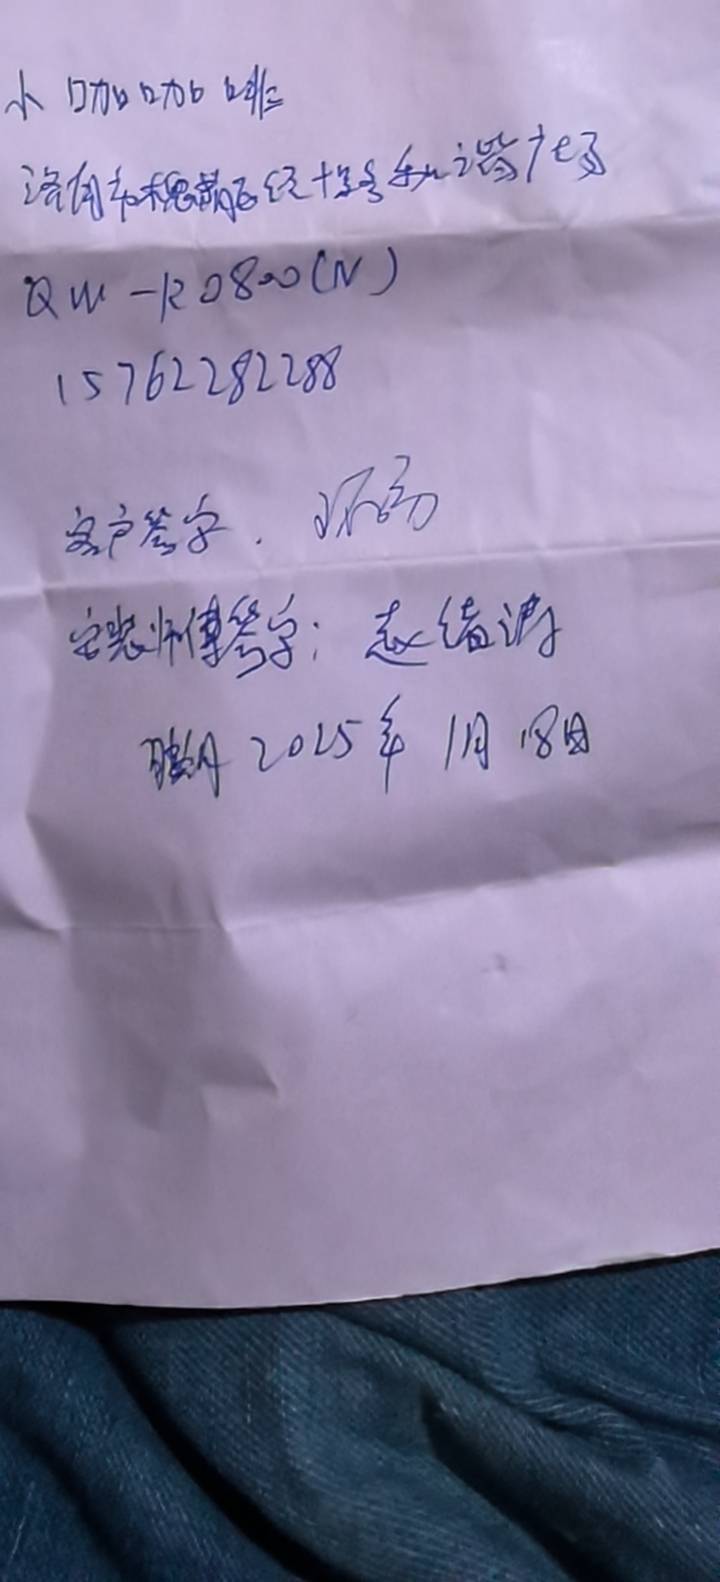 小咖咖啡
济南市槐荫区经十路和谐广场
QW-R0800(N)
15762282288
客户签字.
安装师傅签字: 赵绪
日期 2025年 1月 18日